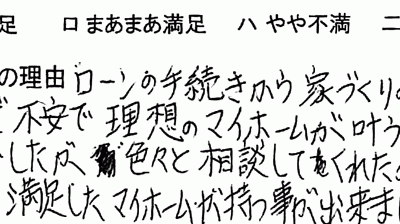 足 ロ まあまあ満足 ハ やや不満 ニ
の理由 ローンの手続きから家づくりの
で不安で理想のマイホームが叶う
したが色々と相談してくれた。
満足したマイホームが持つ事が出来ま